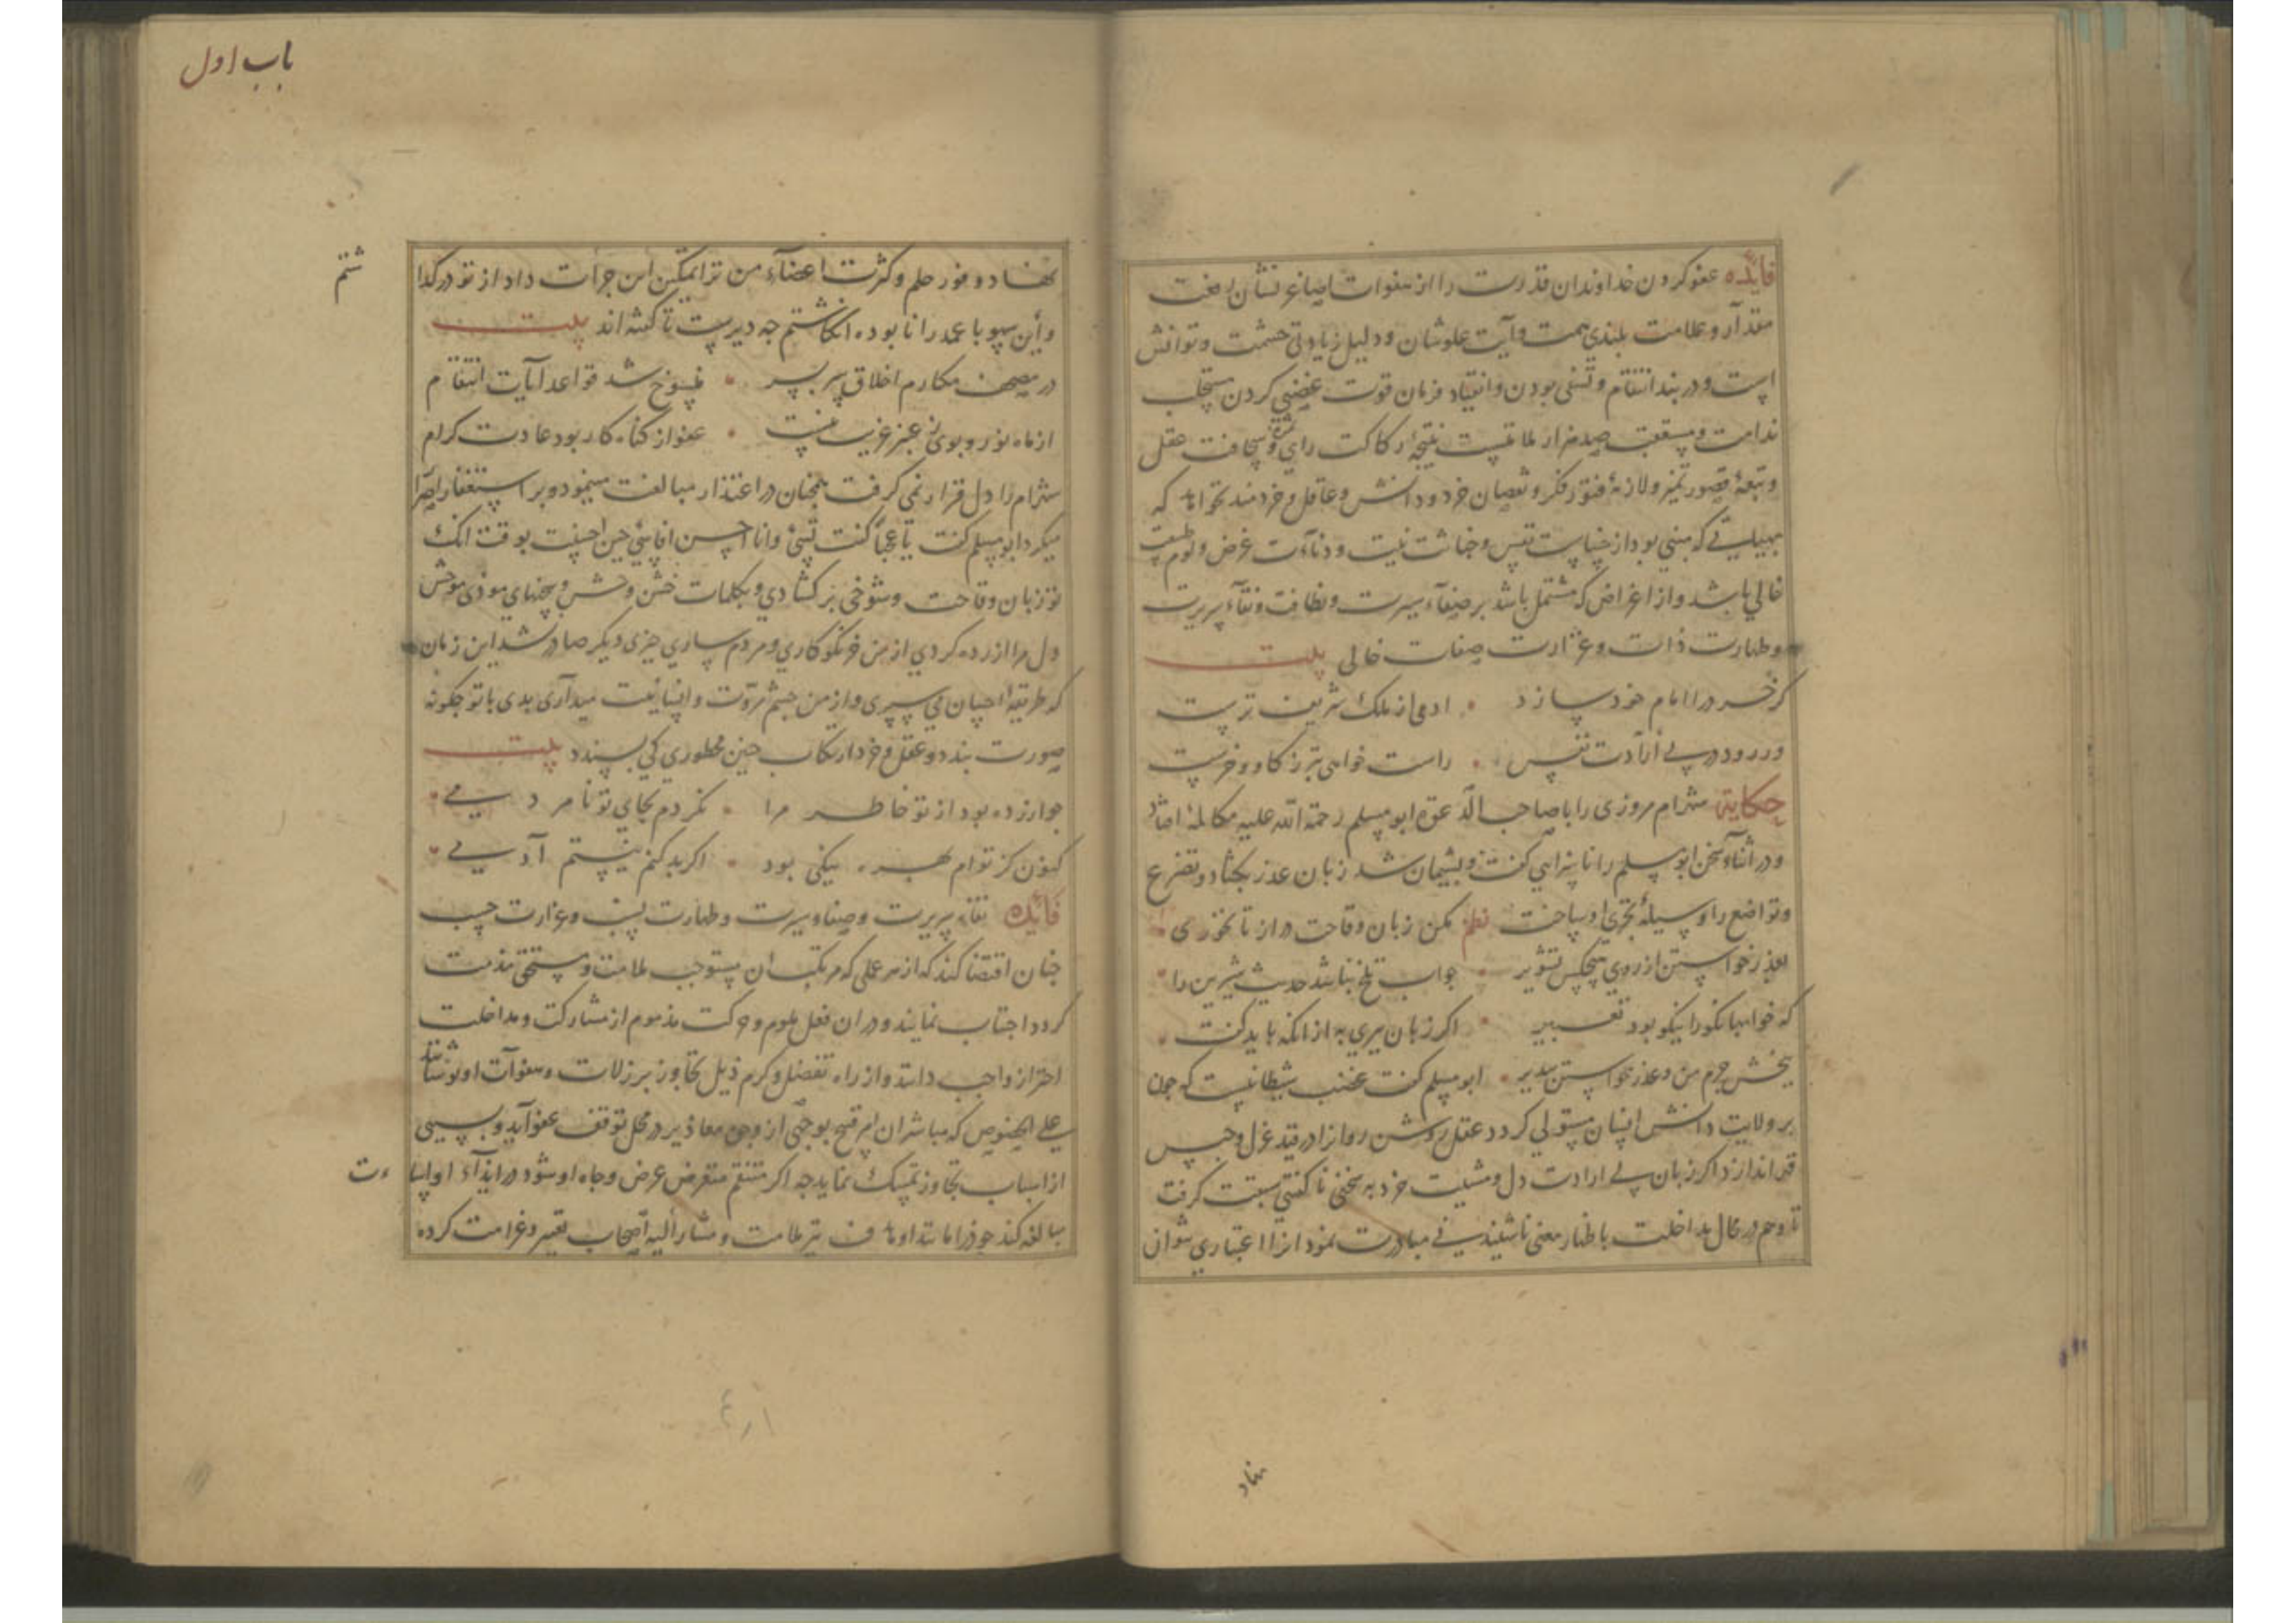 فایده عفو کردن خداوندان قدرت را از هفوات اصاغر نشان رفعت
مقدار و علامت بلندی همت و آیت علو شان و دلیل زیادتی حشمت و توانش
است و در بند انتقام و تشفی بودن و انقیاد فرمان قوت غضبی کردن مستجلب
ندامت و مستعقب صد هزار ملامتست نتیجهٔ رکاکت رای و سخافت عقل
و تبعهٔ قصور تمیز و لازمهٔ فتور فکر و نقصان خرد و دانش و عاقل و خردمند نخواهد که
که مبنی بود از خساست نفس و خباثت نیت و دناءت عرض و لوم طبیعت
خالی باشد و از اغراض که مشتمل باشد بر صفاء سیرت و نظافت و نقاء سریرت
و طهارت ذات و غزارت صفات خالی بیت
کر خرد را امام خود سازد • ادمی از ملک شریف ترست
ور رود در پی ارادت نفس • راست خواهی بتر ز کاو و خرست
حکایة شهرام مروزی را با صاحب الدعوة ابو مسلم رحمة الله علیه مکالمهٔ افتاد
و در اثناء سخن ابو مسلم را ناسزایی کفت و پشیمان شد زبان عذر بکشاد و تضرع
و تواضع را وسیلهٔ ساخت نظم مکن زبان وقاحت دراز تا نخوری
بعذر خواستن از روی هیچکس تشویر • جواب تلخ نباشد حدیث شیرین را
که خواب نیکو را نیکو بود تعبیر • اکر زبان ببری به از انکه باید کفت
ببخش جرم من و عذر خواستن بپذیر • ابو مسلم کفت غضب شیطانیست که چون
بر ولایت دانش انسان مستولی کردد عقل روشن روانرا در قید عزل و حبس
قهر اندازد اکر زبان بی ارادت دل و مشیت خرد به سخنی ناکفتنی سبقت کرفت
و وهم در حال مداخلت باظهار معنی ناشنیدنی مبادرت نمود انرا اعتباری نتوان
نهاد
باب اول
نهاد و وفور حلم و کثرت اغضاء من ترا تمکین این جرات داد از تو درکذا شتم
و این سهو با عمد را نابوده انکاشتم چه دیرست تا کفته‌اند بیت
در مصحف مکارم اخلاق سر بسر • منسوخ شد قواعد آیات انتقام
از ماه نور و بوی ز عنبر غریب نیست • عفو از کناه کار بود عادت کرام
شهرام را دل قرار نمی کرفت همچنان در اعتذار مبالغت مینمود و بر استغفار اصرار
میکرد ابو مسلم کفت یا عجبا کنت تسئ وانا احسن افاسئ حین احسنت بوقت انک
تو زبان وقاحت و شوخی بر کشادی و بکلمات خشن و سخنهای موذی موحش
دل مرا ازرده کردی از من جز نکو کاری و مردم ساری چیزی دیکر صادر نشد این زمان
که طریقهٔ احسان می سپری و از من چشم مروت و انسانیت میداری بدی با تو چکونه
صورت بندد و عقل و خرد ارتکاب چنین محظوری کی پسندد بیت
چو ازرده بود از تو خاطر مرا • نکردم بجای تو نامردمی
کنون کز توام بهره نیکی بود • اکر بد کنم نیستم آدمی
فایده نقاء سریرت و صفاء سیرت و طهارت نسب و غزارت حسب
چنان اقتضا کند که از هر عملی که مرتکب ان مستوجب ملامت و مستحق مذمت
کردد اجتناب نمایند و در ان فعل ملوم و حرکت مذموم از مشارکت و مداخلت
احتراز واجب دانند و از راه تفضل و کرم ذیل تجاوز بر زلات و هفوات او پوشانند
علی الخصوص که مباشر ان امر قبیح بوجهی از وجوه معاذیر در محل توقف عفو آید و بسببی
از اسباب تجاوز تمسک نماید چه اکر منتقم متعرض عرض و جاه او شود در ایذاء او اساءت
مبالغه کند خود را مانند او هدف تیر ملامت و مشار الیه اصحاب تعییر و غرامت کرده